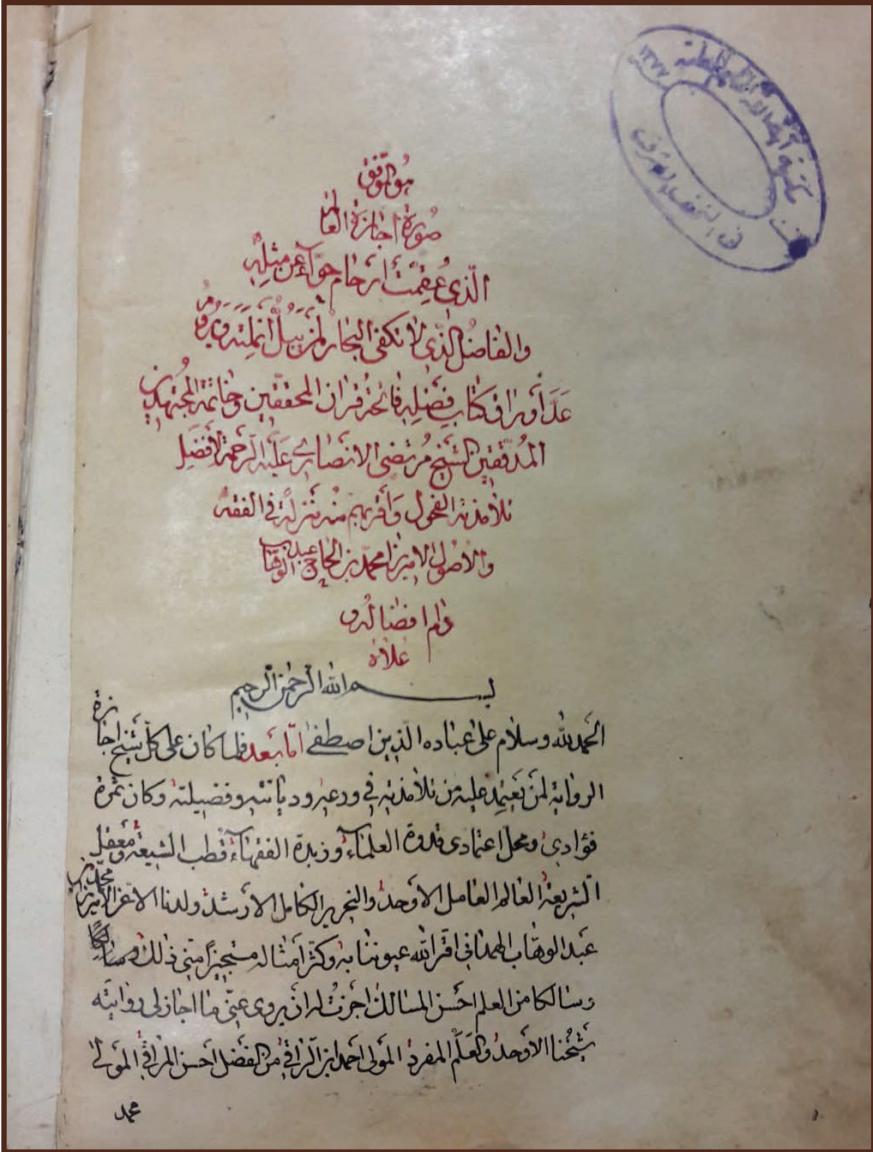 هو الموفق
صورة اجازة العالم
الذى عقمت أرحام حوآء عن مثله
والفاضل الذى لا تكفى البحار لمن يبل أنملته ويروم
عد أوراق كتاب فضله فاتحة قران المحققين وخاتمة المجتهدين
المدققين الشيخ مرتضى الانصارى عليه الرحمة لأفضل
تلامذته الفحول وأقربهم منه منزلة فى الفقه
والاصول الاميرزا محمد بن الحاج عبد الوهاب
دام افضاله و
علاه
بسم الله الرحمن الرحيم
الحمد لله وسلام على عباده الذين اصطفى امّا بعد فلما كان على كلّ شيخ اجازة
الرواية لمن يعتمد عليه من تلامذته في ورعه وديانته وفضيلته وكان ثمرة
فؤادى ومحل اعتمادى قدوة العلمآء وزبدة الفقهآء قطب الشيعة ومعقل
الشريعة العالم العامل الاوحد والنحرير الكامل الارشد ولدنا الاعز الاميرزا محمد بن
عبد الوهاب الهمدانى اقر الله عيوننا به وكثر أمثاله مستجيزا منى ذلك وسالكا
وسالكا من العلم احسن المسالك اجزت له ان يروى عنّى ما اجاز لى روايته
شيخنا الاوحد والعلم المفرد المولى احمد النراقى من الفضل احسن المراقى المولى
محمد
مكتبة
العامة
١٣٧٧
فى النجف الاشرف